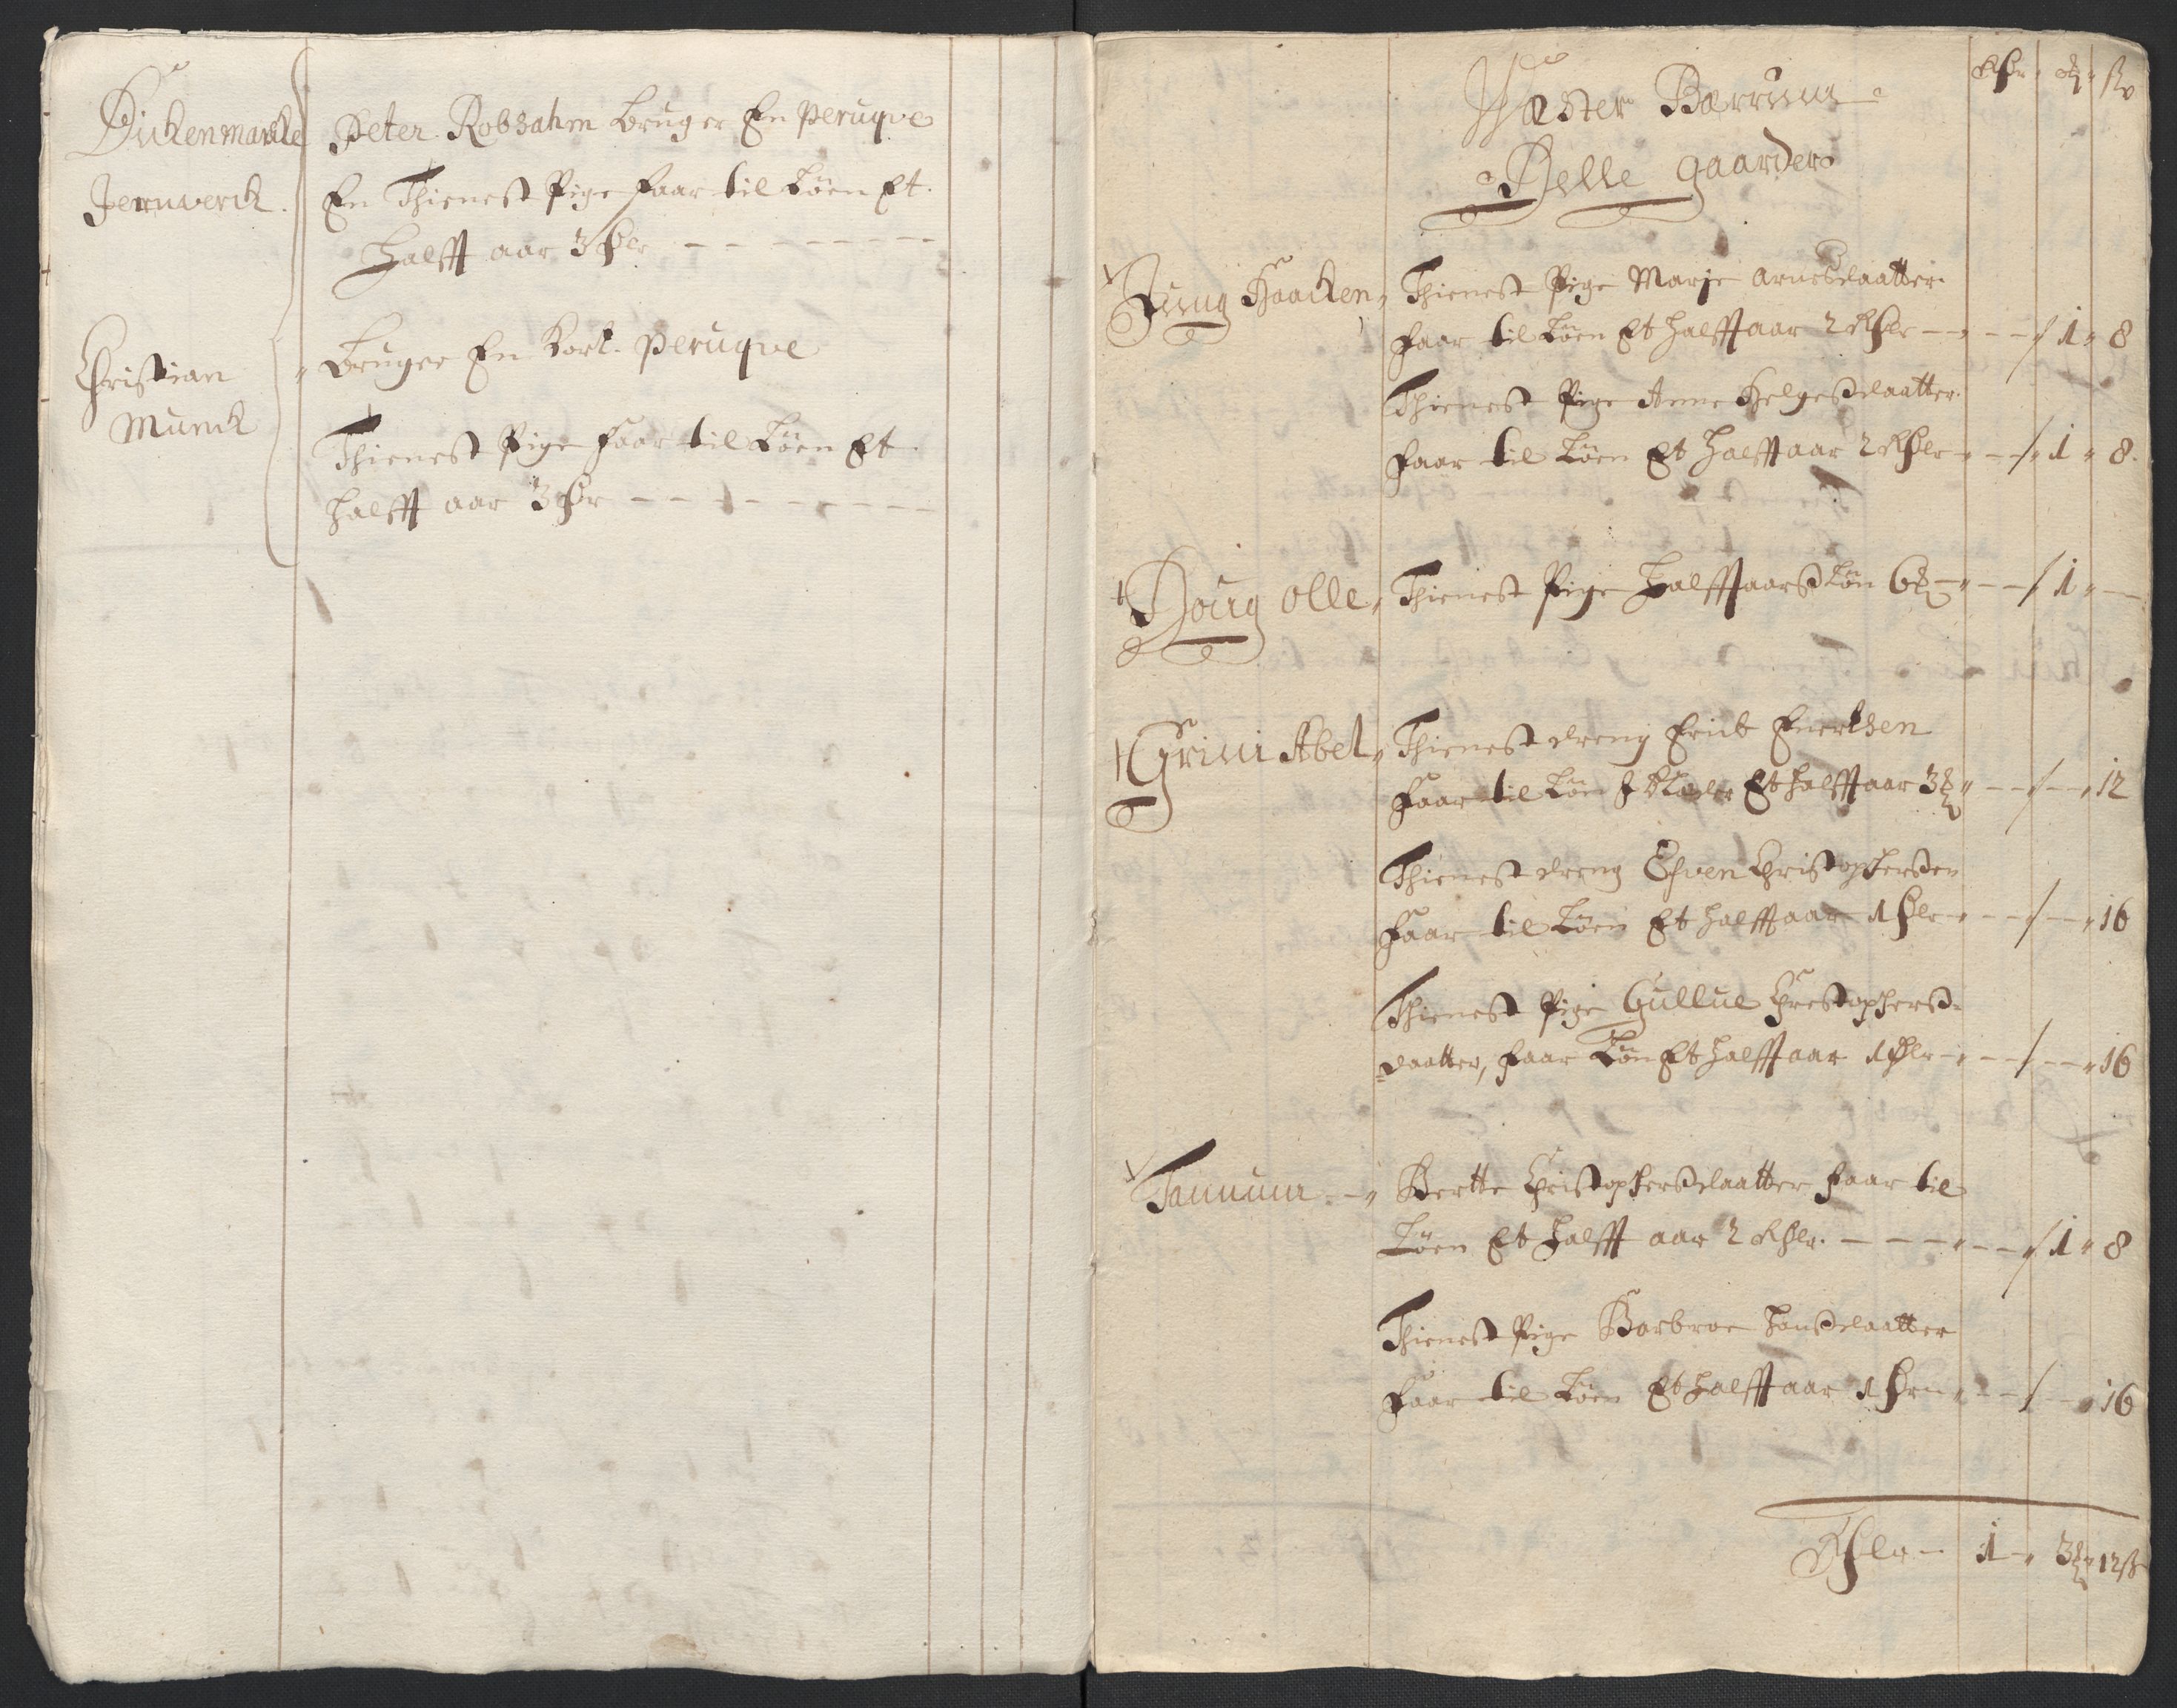 Dickenmarcks
Jernwerck.
Peter Robsahm bruger En peruqve
En Thienest Pige faar til Løen Et
Halfft aar 3 dlr
Christian
Munck
bruger En kort peruqve
Thienest Pige faar til Løen Et
halfft aar 3 dr
Wæster Bærrum
Delle gaarder
Rdr
Jung Haacken
Thienest Pige Marje Arnesdaatter
faar til Løen Et halfft aar 2 Rdlr 1 8
Thienest Pige Anne Helgesdaatter
faar til Løen Et halfft aar 2 Rdlr 1 8
Houg Olle
Thienest Pige Halfft aarss Løn 6 1 —
Grini Abel
Thienest dreng Erick Enertsen
faar til Løn Et halfft aar 3 — 12
Thienest dreng Schven Christophersen
faar til Løen Et halfft aar 1 dlr — 16
Thienest Pige Gullue Chrestophers-
daatter, faar Løn Et halfft aar 1 dlr — 16
Tannum
Bertte Christophersdaatter faar til
Løen Et halfft aar 2 Rdlr. 1 8
Thienest Pige Barbroe Hansdaatter
faar til Løen Et halfft aar 1 dr — 16
Rdlr 1 3 12 ß